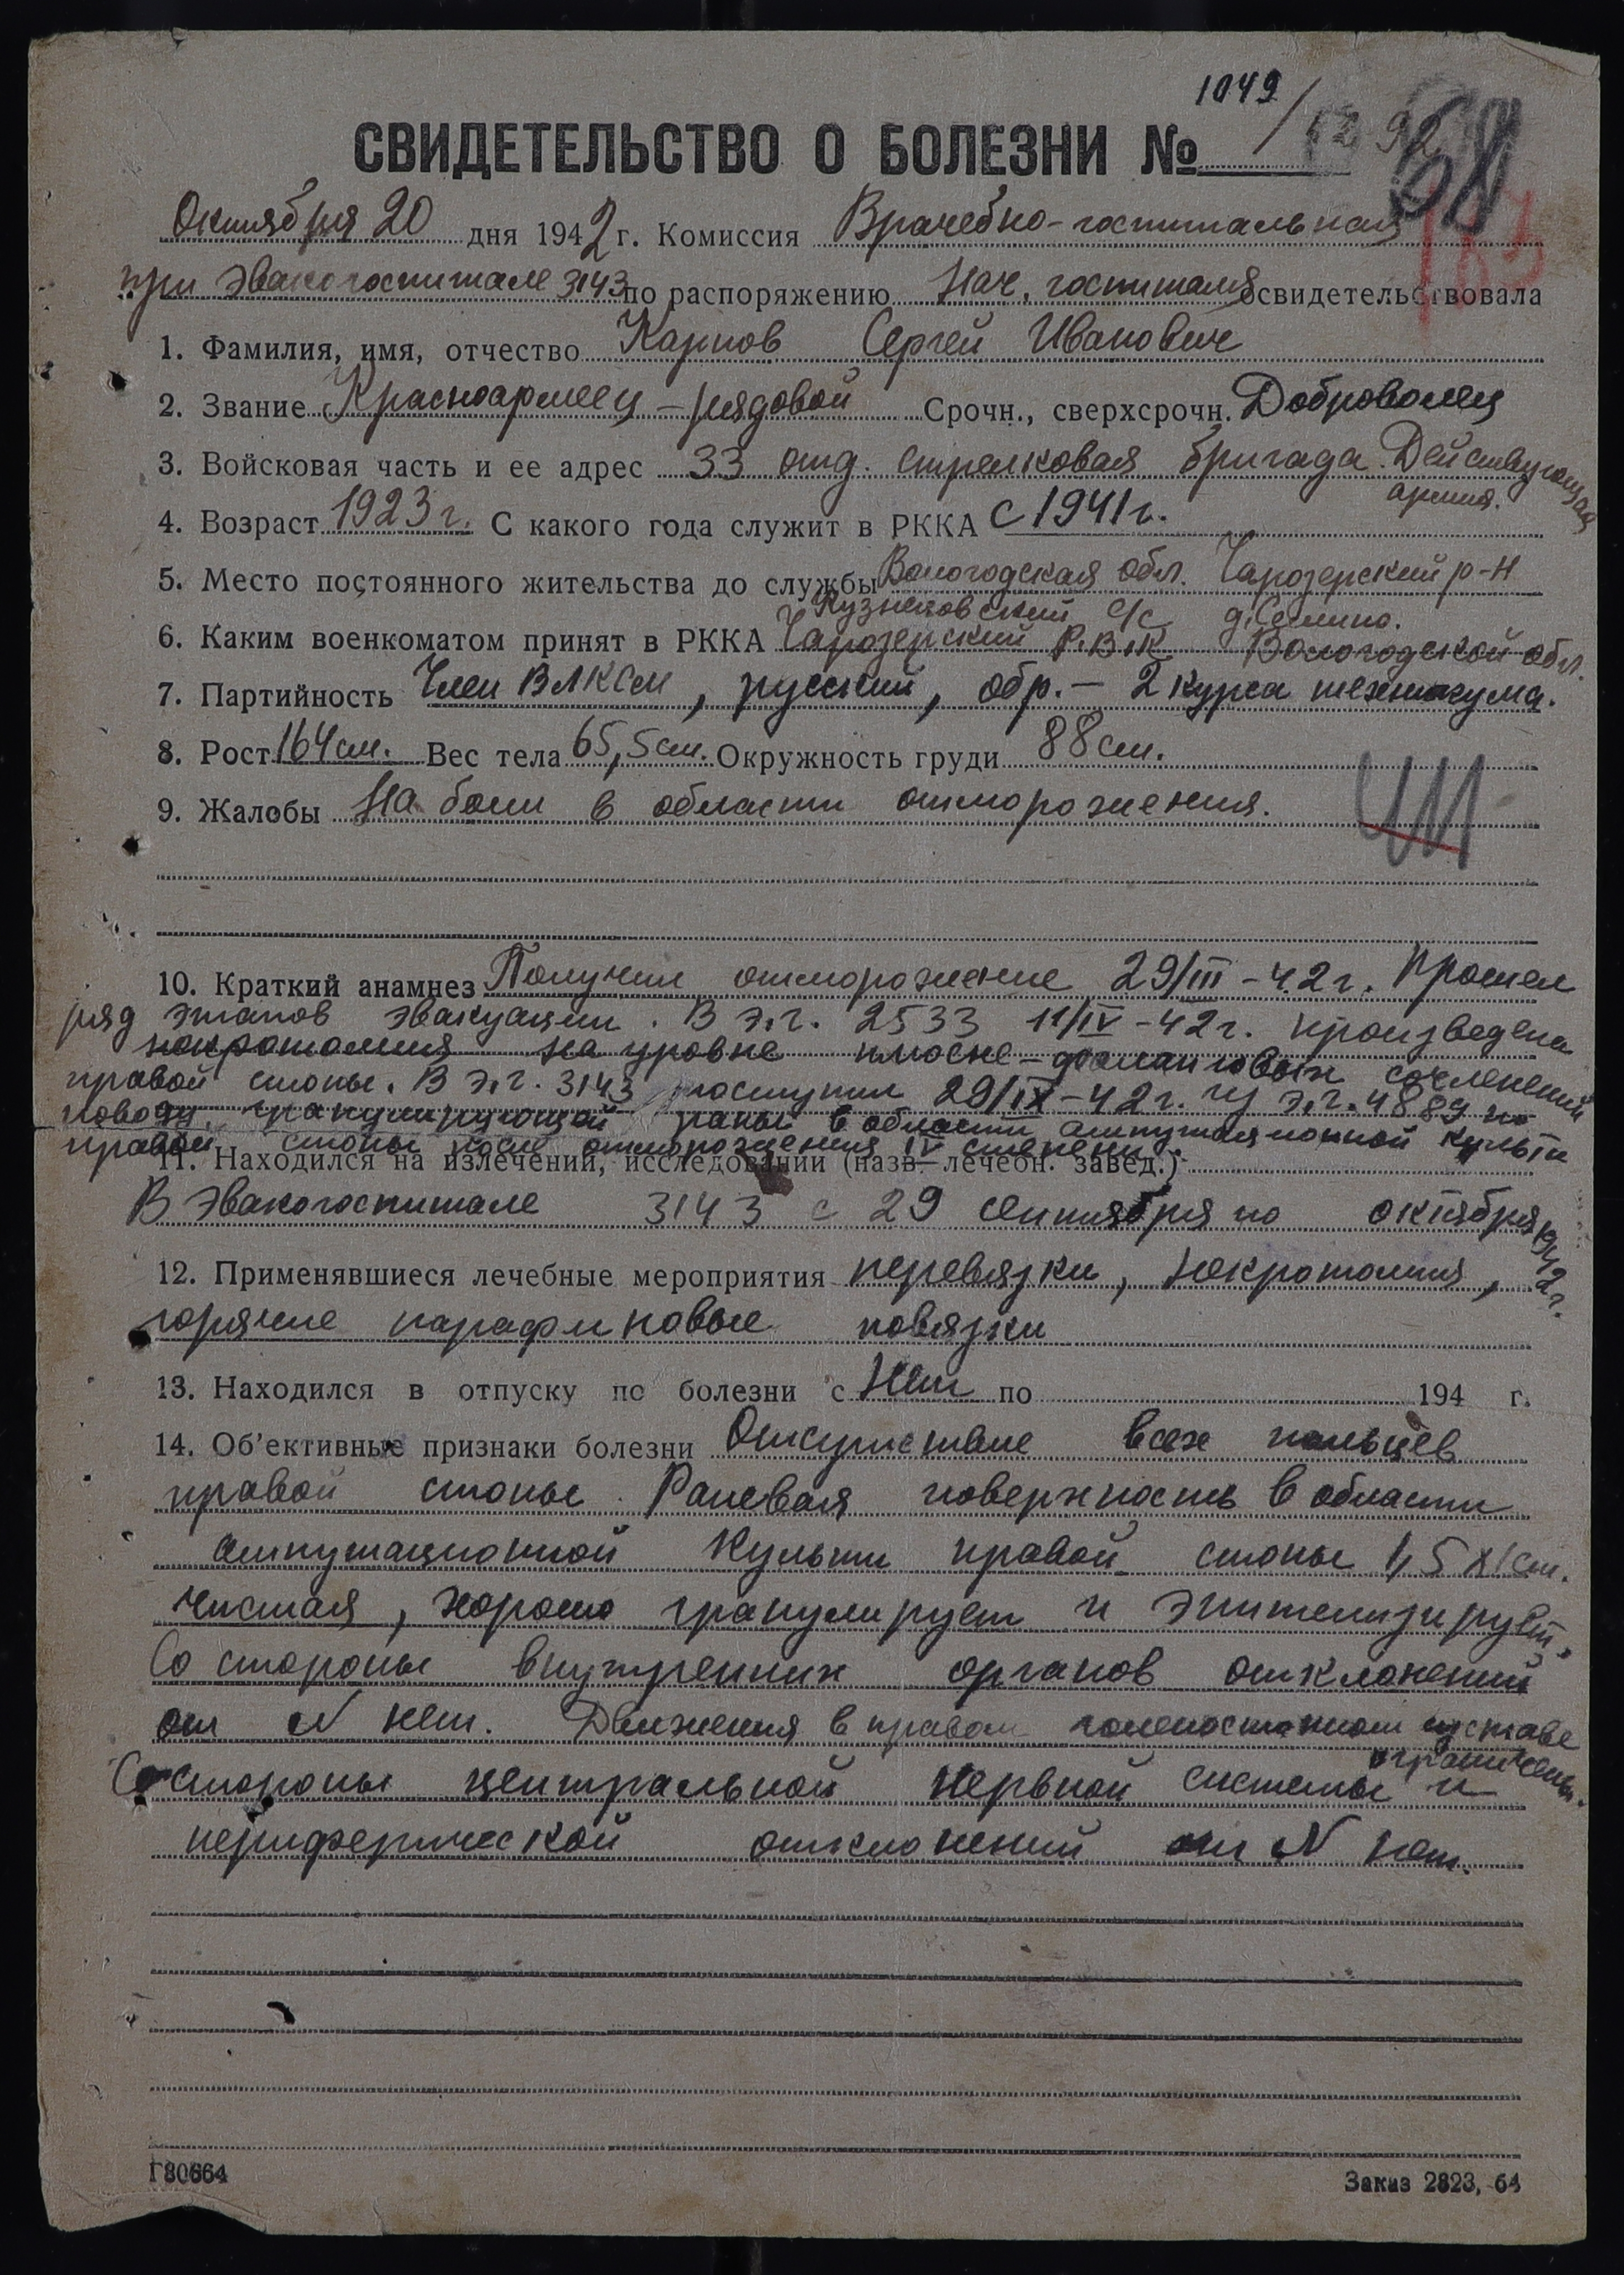 1049/
68
СВИДЕТЕЛЬСТВО О БОЛЕЗНИ №
Октября 20 дня 1942 г. Комиссия Врачебно-госпитальная
при эвакогоспитале 3143 по распоряжению Нач. госпиталя освидетельствовала
1. Фамилия, имя, отчество Карпов Сергей Иванович
2. Звание Красноармеец - рядовой Срочн., сверхсрочн. Доброволец
3. Войсковая часть и ее адрес 33 отд. стрелковая бригада. Действующая
армия.
4. Возраст 1923 г. С какого года служит в РККА с 1941 г.
5. Место постоянного жительства до службы Вологодская обл. Чарозерский р-н
Кузнецовский с/с д.
6. Каким военкоматом принят в РККА Чарозерский Р.В.К Вологодской обл.
7. Партийность Член ВЛКСМ, русский, обр. - 2 курса техникума.
8. Рост 164 см. Вес тела 65,5 см. Окружность груди 88 см.
9. Жалобы На боли в области отморожения.
10. Краткий анамнез Получил отморожение 29/III - 42 г. Прошел
ряд этапов эвакуации. В э.г. 2533 11/IV - 42 г. произведена
некротомия на уровне плюсне-фаланговых сочленений
правой стопы. В э.г. 3143 поступил 29/IX - 42 г. из э.г. 4889 по
поводу гранулирующей раны в области ампутационной культи
правой стопы после отморожения IV степени.
11. Находился на излечении, исследовании (назв. лечебн. завед.)
В эвакогоспитале 3143 с 29 сентября по октября 1942 г.
12. Применявшиеся лечебные мероприятия перевязки, некротомия,
горячие парафиновые повязки
13. Находился в отпуску по болезни с Нет по 194 г.
14. Об'ективные признаки болезни Отсутствие всех пальцев
правой стопы. Раневая поверхность в области
ампутационной культи правой стопы
чистая, хорошо гранулирует и эпителизирует.
Со стороны внутренних органов отклонений
от N нет. Движения в правом голеностопном суставе
ограничены.
Со стороны центральной нервной системы и
периферической отклонений от N нет.
Г80664
Заказ 2823, 64